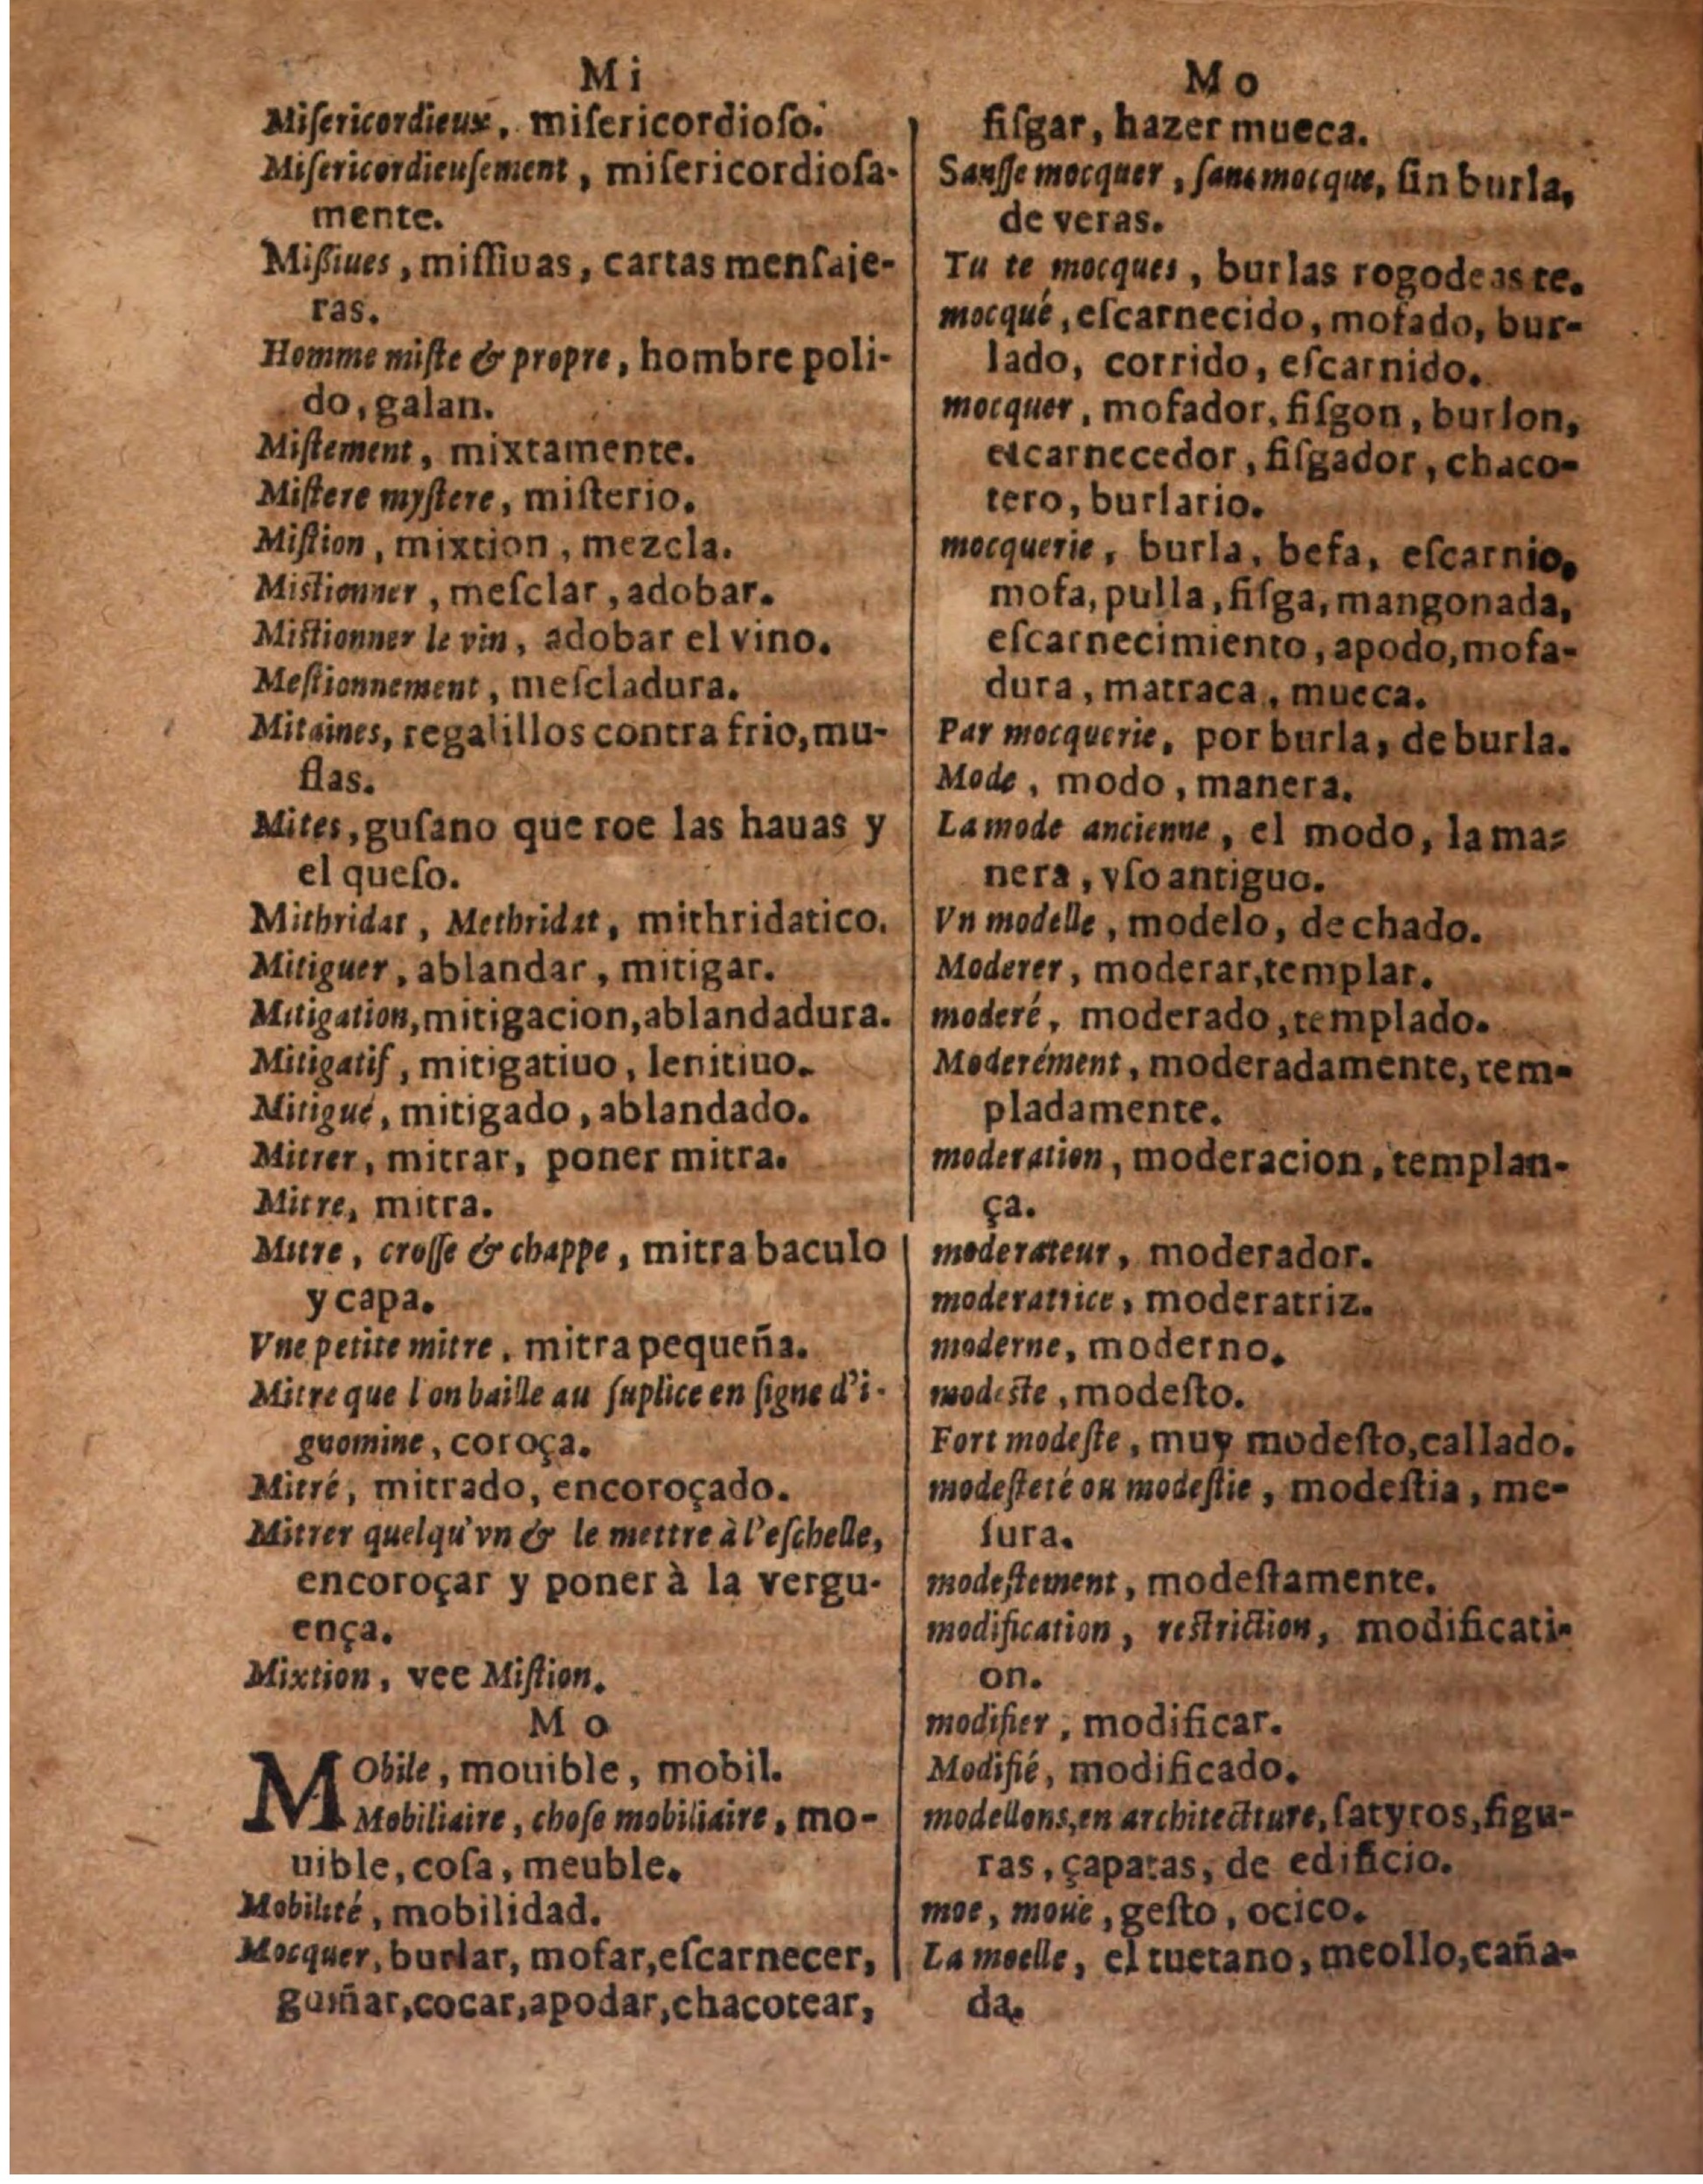 Mi
Miſericordieux, miſericordioſo.
Miſericordieuſement, miſericordioſa-
mente.
Mißiues, miſſiuas, cartas menſaje-
ras.
Homme miſte & propre, hombre poli-
do, galan.
Miſtement, mixtamente.
Miſtere myſtere, miſterio.
Miſtion, mixtion, mezcla.
Mistionner, meſclar, adobar.
Mistionner le vin, adobar el vino.
Meſtionnement, meſcladura.
Mitaines, regalillos contra frio, mu-
flas.
Mites, guſano que roe las hauas y
el queſo.
Mithridat, Methridat, mithridatico.
Mitiguer, ablandar, mitigar.
Mitigation, mitigacion, ablandadura.
Mitigatif, mitigatiuo, lenitiuo.
Mitigué, mitigado, ablandado.
Mitrer, mitrar, poner mitra.
Mitre, mitra.
Mitre, croſſe & chappe, mitra baculo
y capa.
Vne petite mitre, mitra pequeña.
Mitre que l'on baille au ſuplice en ſigne d'i-
gnomine, coroça.
Mitré, mitrado, encoroçado.
Mitrer quelqu'vn & le mettre à l'eſchelle,
encoroçar y poner à la vergu-
ença.
Mixtion, vee Miſtion.
Mo
MObile, mouible, mobil.
Mobiliaire, choſe mobiliaire, mo-
uible, coſa, meuble.
Mobilité, mobilidad.
Mocquer, burlar, mofar, eſcarnecer,
guiñar, cocar, apodar, chacotear,
Mo
fiſgar, hazer mueca.
Sanſſe mocquer, ſans mocque, ſin burla,
de veras.
Tu te mocques, burlas rogodeas te.
mocqué, eſcarnecido, mofado, bur-
lado, corrido, eſcarnido.
mocquer, mofador, fiſgon, burlon,
eſcarnecedor, fiſgador, chaco-
tero, burlario.
mocquerie, burla, befa, eſcarnio,
mofa, pulla, fiſga, mangonada,
eſcarnecimiento, apodo, mofa-
dura, matraca, mueca.
Par mocquerie, por burla, de burla.
Mode, modo, manera.
La mode ancienne, el modo, la ma-
nera, vſo antiguo.
Vn modelle, modelo, dechado.
Moderer, moderar, templar.
moderé, moderado, templado.
Moderément, moderadamente, tem-
pladamente.
moderation, moderacion, templan-
ça.
moderateur, moderador.
moderatrice, moderatriz.
moderne, moderno.
modeste, modeſto.
Fort modeſte, muy modeſto, callado.
modeſteté ou modeſtie, modeſtia, me-
ſura.
modeſtement, modeſtamente.
modification, restriction, modificati-
on.
modifier, modificar.
Modifié, modificado.
modellons, en architecture, ſatyros, figu-
ras, çapatas, de edificio.
moe, moüe, geſto, ocico.
La moelle, el tuetano, meollo, caña-
da.